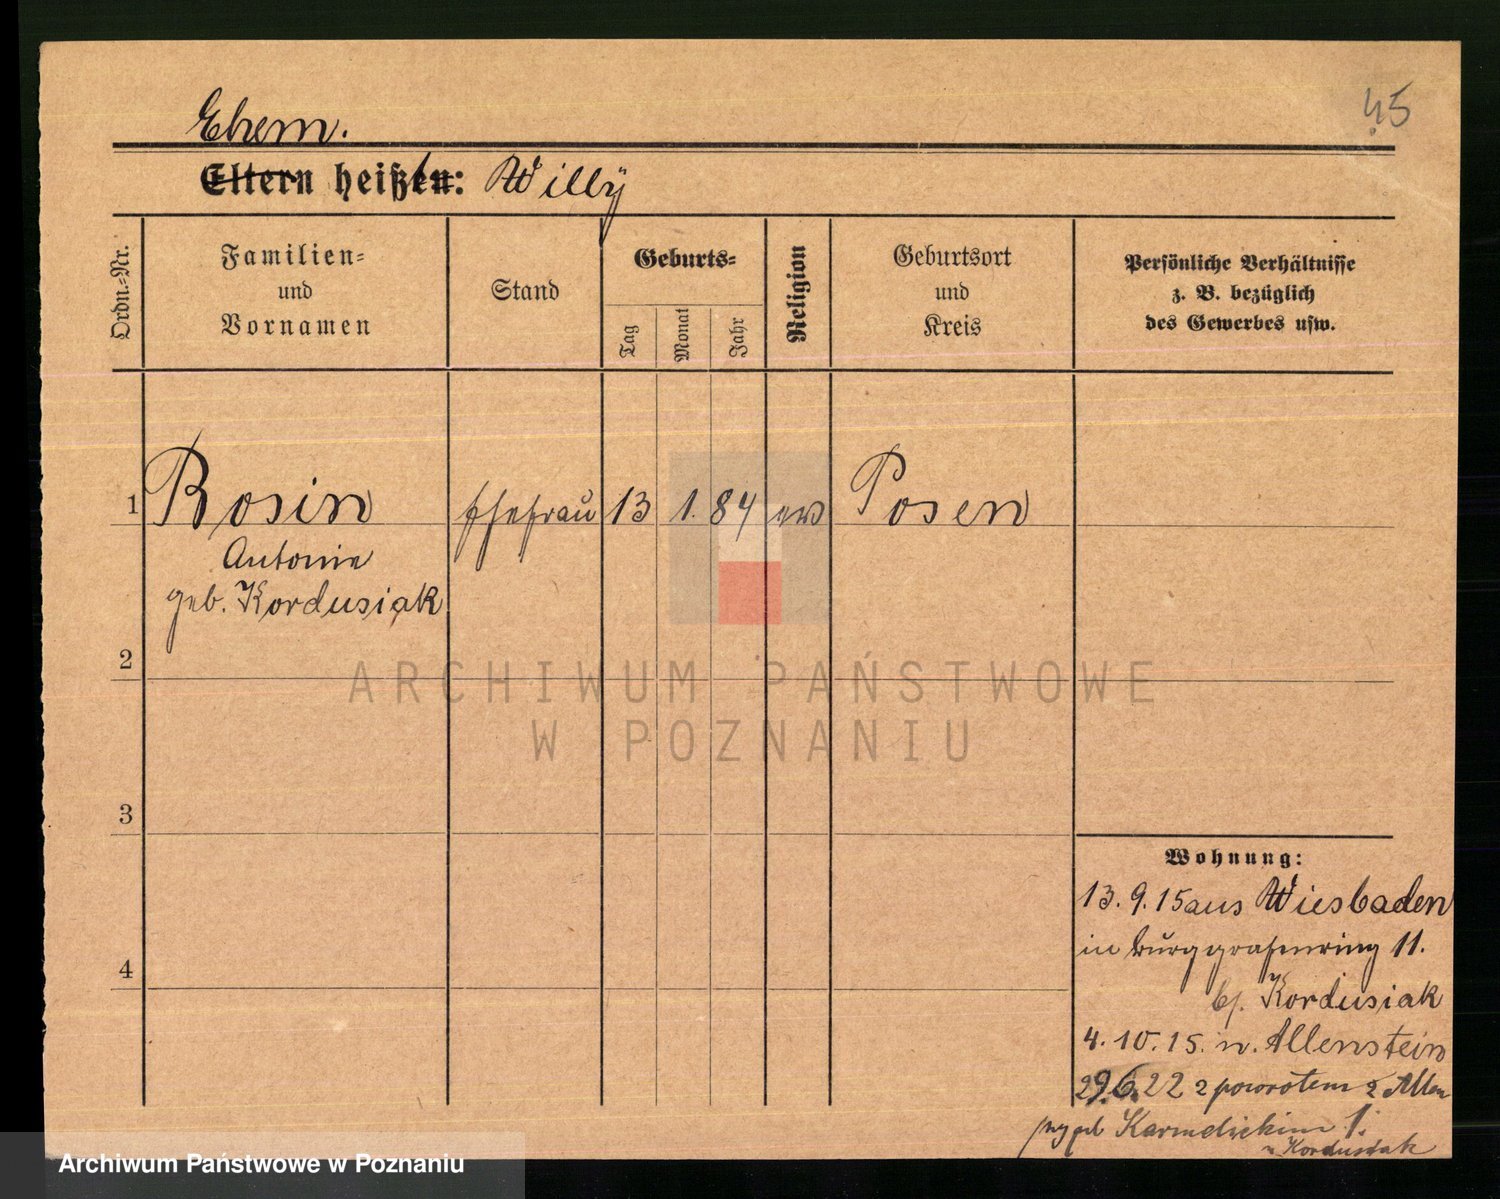 45
Ehem.
Eltern heißen: Willy
Ordn.-Nr.
Familien-
und
Vornamen
Stand
Geburts-
Tag
Monat
Jahr
Religion
Geburtsort
und
Kreis
Persönliche Verhältnisse
z. B. bezüglich
des Gewerbes usw.
1 Rosin Ehefrau 13 1. 84 ev Posen
Antonie
geb. Kordusiak
2
3
4
Wohnung:
13. 9. 15 aus Wiesbaden
in Burggrafenring 11.
bj. Kordusiak
4. 10. 15. n. Allenstein
29.6.22 z powrotem z Allen
Karmelickim 1.
u Kordusiak
ARCHIWUM PAŃSTWOWE
W POZNANIU
Archiwum Państwowe w Poznaniu